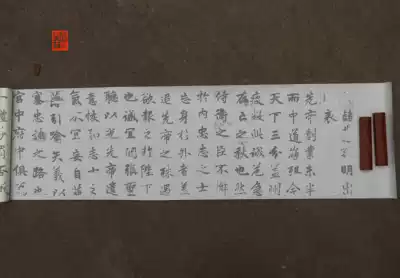 諸葛孔明出
師表
先帝創業未半
而中道崩殂今
天下三分益州
疲敝此誠危急
存亡之秋也然
侍衛之臣不懈
於內忠志之士
忘身於外者蓋
追先帝之殊遇
欲報之於陛下
也誠宜開張聖
聽以光先帝遺
德恢弘志士之
氣不宜妄自菲
薄引喻失義以
塞忠諫之路也
宮中府中俱為